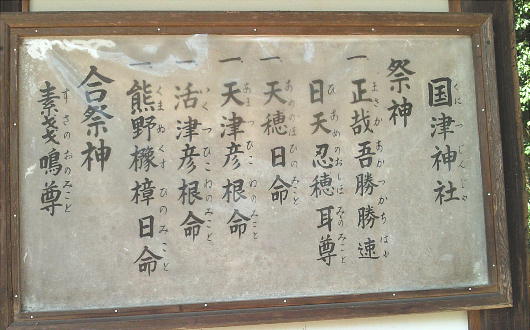 国津神社
くにつじんじゃ
祭神
一 正哉吾勝勝速
まさかあかつかちはや
日天忍穂耳尊
ひあめのおしほみのみこと
一 天穂日命
あめのほひのみこと
一 天津彦根命
あまつひこねのみこと
一 活津彦根命
いくつひこねのみこと
一 熊野櫲樟日命
くまぬくすひのみこと
合祭神
素戔嗚尊
すさのおのみこと